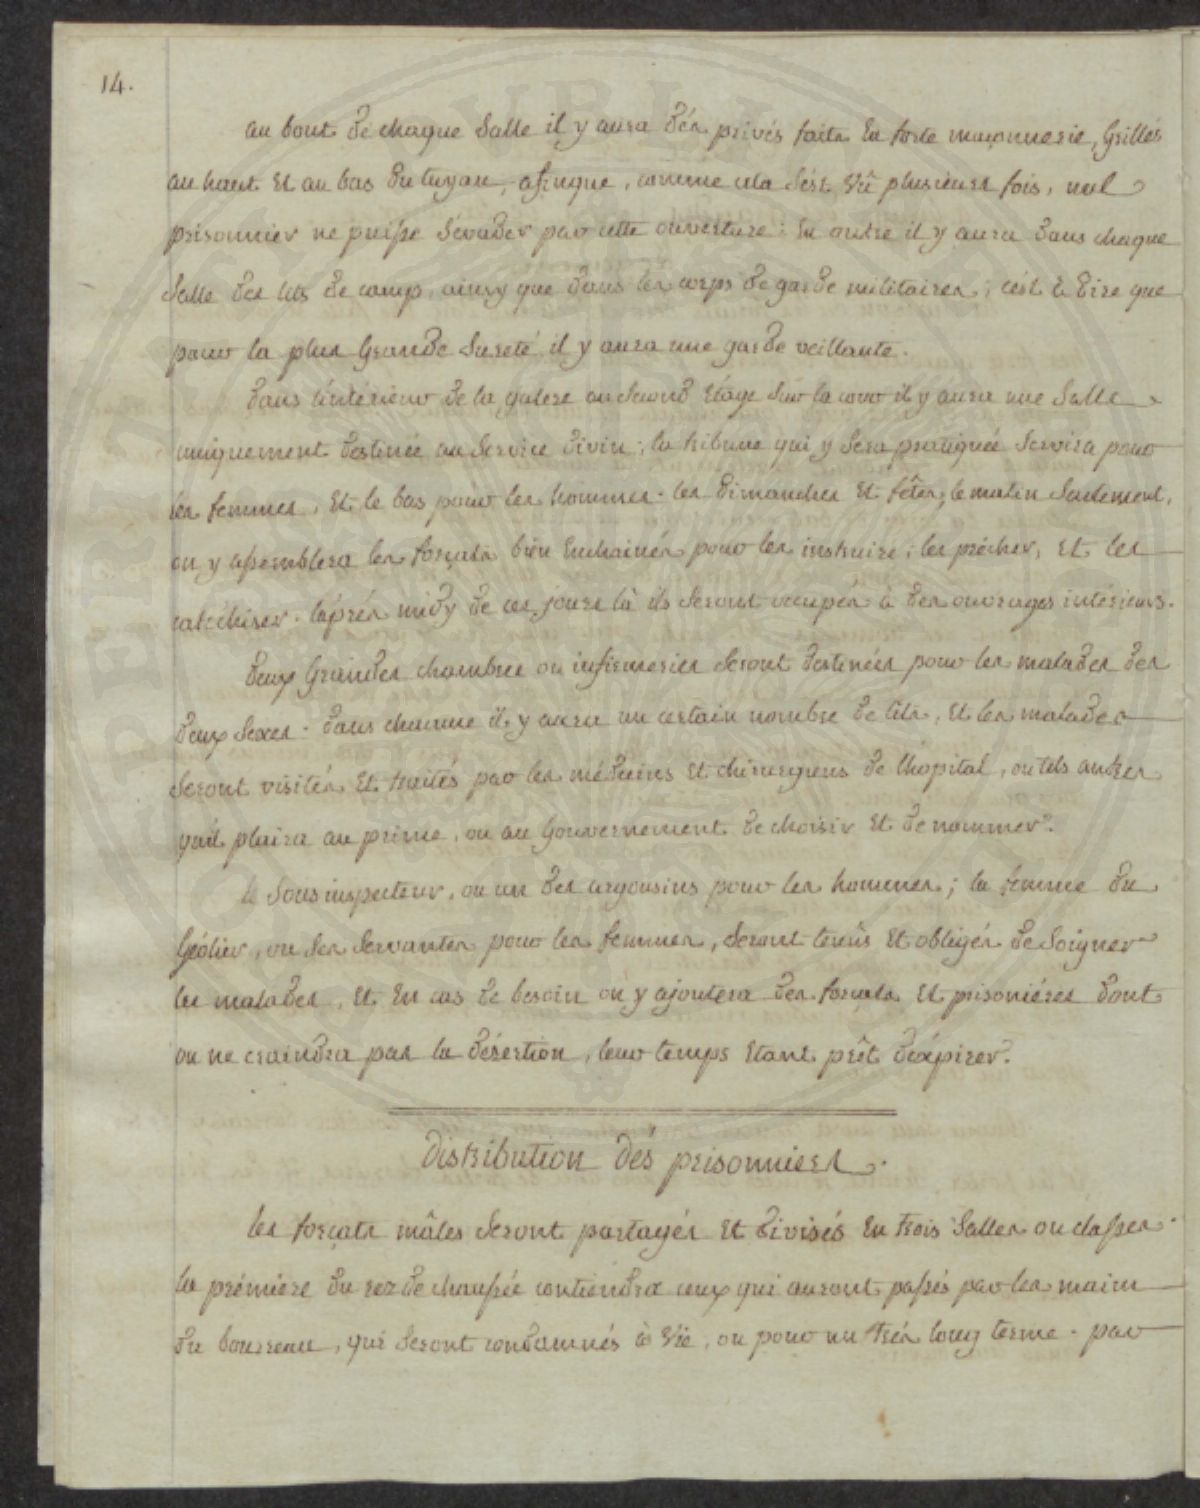 14.
au bout de chaque Salle il y aura dés privés faits En forte maçonnerie, Grillés
au haut Et au bas du tuyau, afinque, comme cela s'ést Vû plusieurs fois, nul
prisonnier ne puisse s'évader par cette ouverture : En outre il y aura dans chaque
Salle des lits de camp, ainsy que dans les corps de garde militaires, c'ést à dire que
pour la plus Grande Sureté il y aura une garde veillante.
Dans l'intérieur de la galere au Second Etage Sur la cour il y aura une Salle
uniquement destinée au Service divin ; la tribune qui y Sera pratiquée Servira pour
les femmes, Et le bas pour les hommes. les dimanches Et fêtes, le matin Seulement,
on y assemblera les forçats bien Enchainés pour les instruire, les précher, Et les
catéchiser. l'aprés midy de ces jours là ils Seront occupés à des ouvrages intérieurs.
Deux Grandes chambres ou infirmeries Seront destinées pour les malades des
deux Sexes. dans chacune il y aura un certain nombre de lits, Et les malades
Seront visités Et traités par les médecins Et chirurgiens de l'hopital, ou tels autres
qu'il plaira au prince, ou au Gouvernement de choisir Et de nommer.
le Sous inspecteur, ou un des argousins pour les hommes ; la femme du
Géôlier, ou Ses Servantes pour les femmes, Seront tenûs Et obligés de Soigner
les malades, Et En cas de besoin on y ajoutera des forçats Et prisoniéres dont
on ne craindra pas la désertion, leur temps Etant prêt d'éxpirer.
Distribution dés prisonniers.
les forçats mâles Seront partagés Et divisés En trois Salles ou classes.
la prémiere du rez de chaussée contiendra ceux qui auront passés par les mains
du bourreau, qui Seront condamnés à Vie, ou pour un trés long terme. par